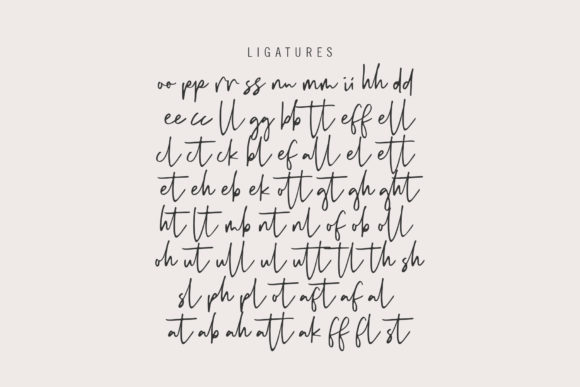 LIGATURES
oo pp rr ss nn mm ii hh dd
ee cc ll gg bb tt eff ell
cl ct ck bl ef all el ett
et eh eb ek ott gt gh ght
ht lt mb nt nl of ob oll
oh ut ull ul utt tl th sh
sl ph pl ot aft af al
at ab ah att ak ff fl st